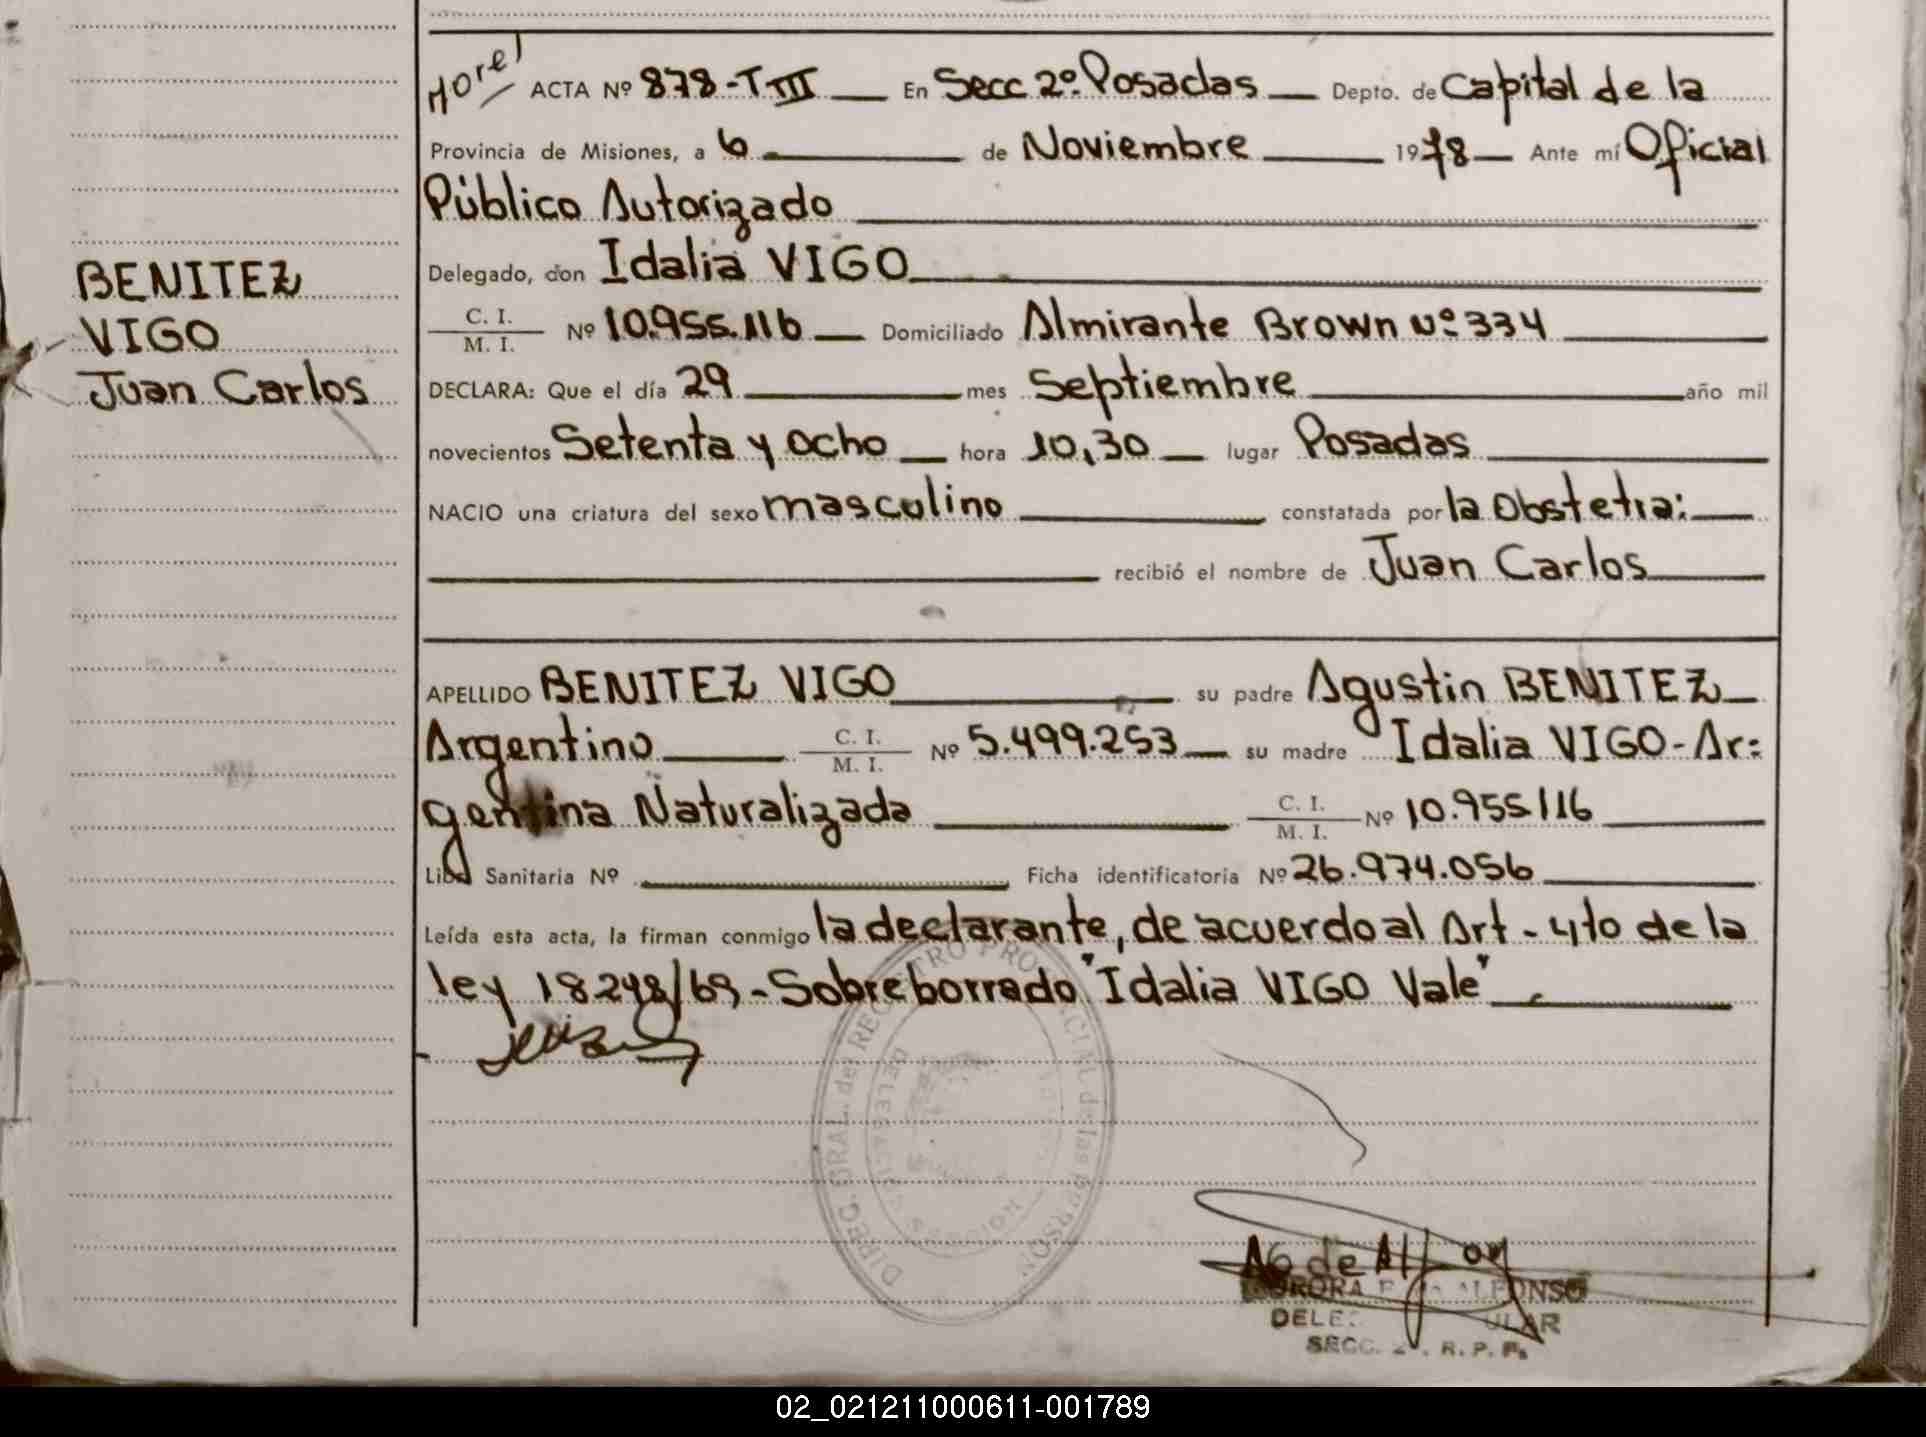 ACTA Nº 878-TIII En Secc 2º. Posadas Depto. de Capital de la
Provincia de Misiones, a 6 de Noviembre 1978 Ante mí Oficial
Público Autorizado
Delegado, don Idalia VIGO
C. I.
M. I. Nº 10.955.116 Domiciliado Almirante Brown Nº 334
DECLARA: Que el día 29 mes Septiembre año mil
novecientos Setenta y ocho hora 10,30 lugar Posadas
NACIO una criatura del sexo masculino constatada por la Obstetra:
recibió el nombre de Juan Carlos
BENITEZ
VIGO
Juan Carlos
APELLIDO BENITEZ VIGO su padre Agustin BENITEZ
Argentino C. I.
M. I. Nº 5.499.253 su madre Idalia VIGO-Ar=
gentina Naturalizada C. I.
M. I. Nº 10.955116
Sanitaria Nº Ficha identificatoria Nº 26.974.056
Leída esta acta, la firman conmigo la declarante, de acuerdo al Art - 4to de la
ley 18248/69 - Sobreborrado "Idalia VIGO Vale"
DIREC. GRAL. del REGISTRO PROVINCIAL de las PERSONAS
ALFONSO
SECC. 2 R. P. P.
02_021211000611-001789